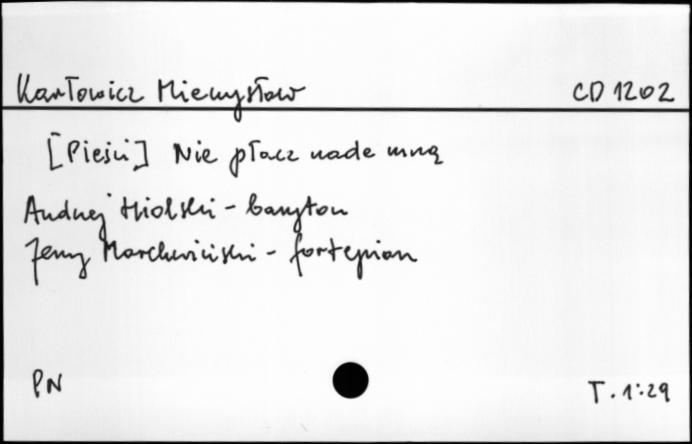 Karłowicz Mieczysław CD 1202
[Pieśni] Nie płacz nade mną
Andrzej Hiolski - baryton
Jerzy Marchwiński - fortepian
PN T. 1:29